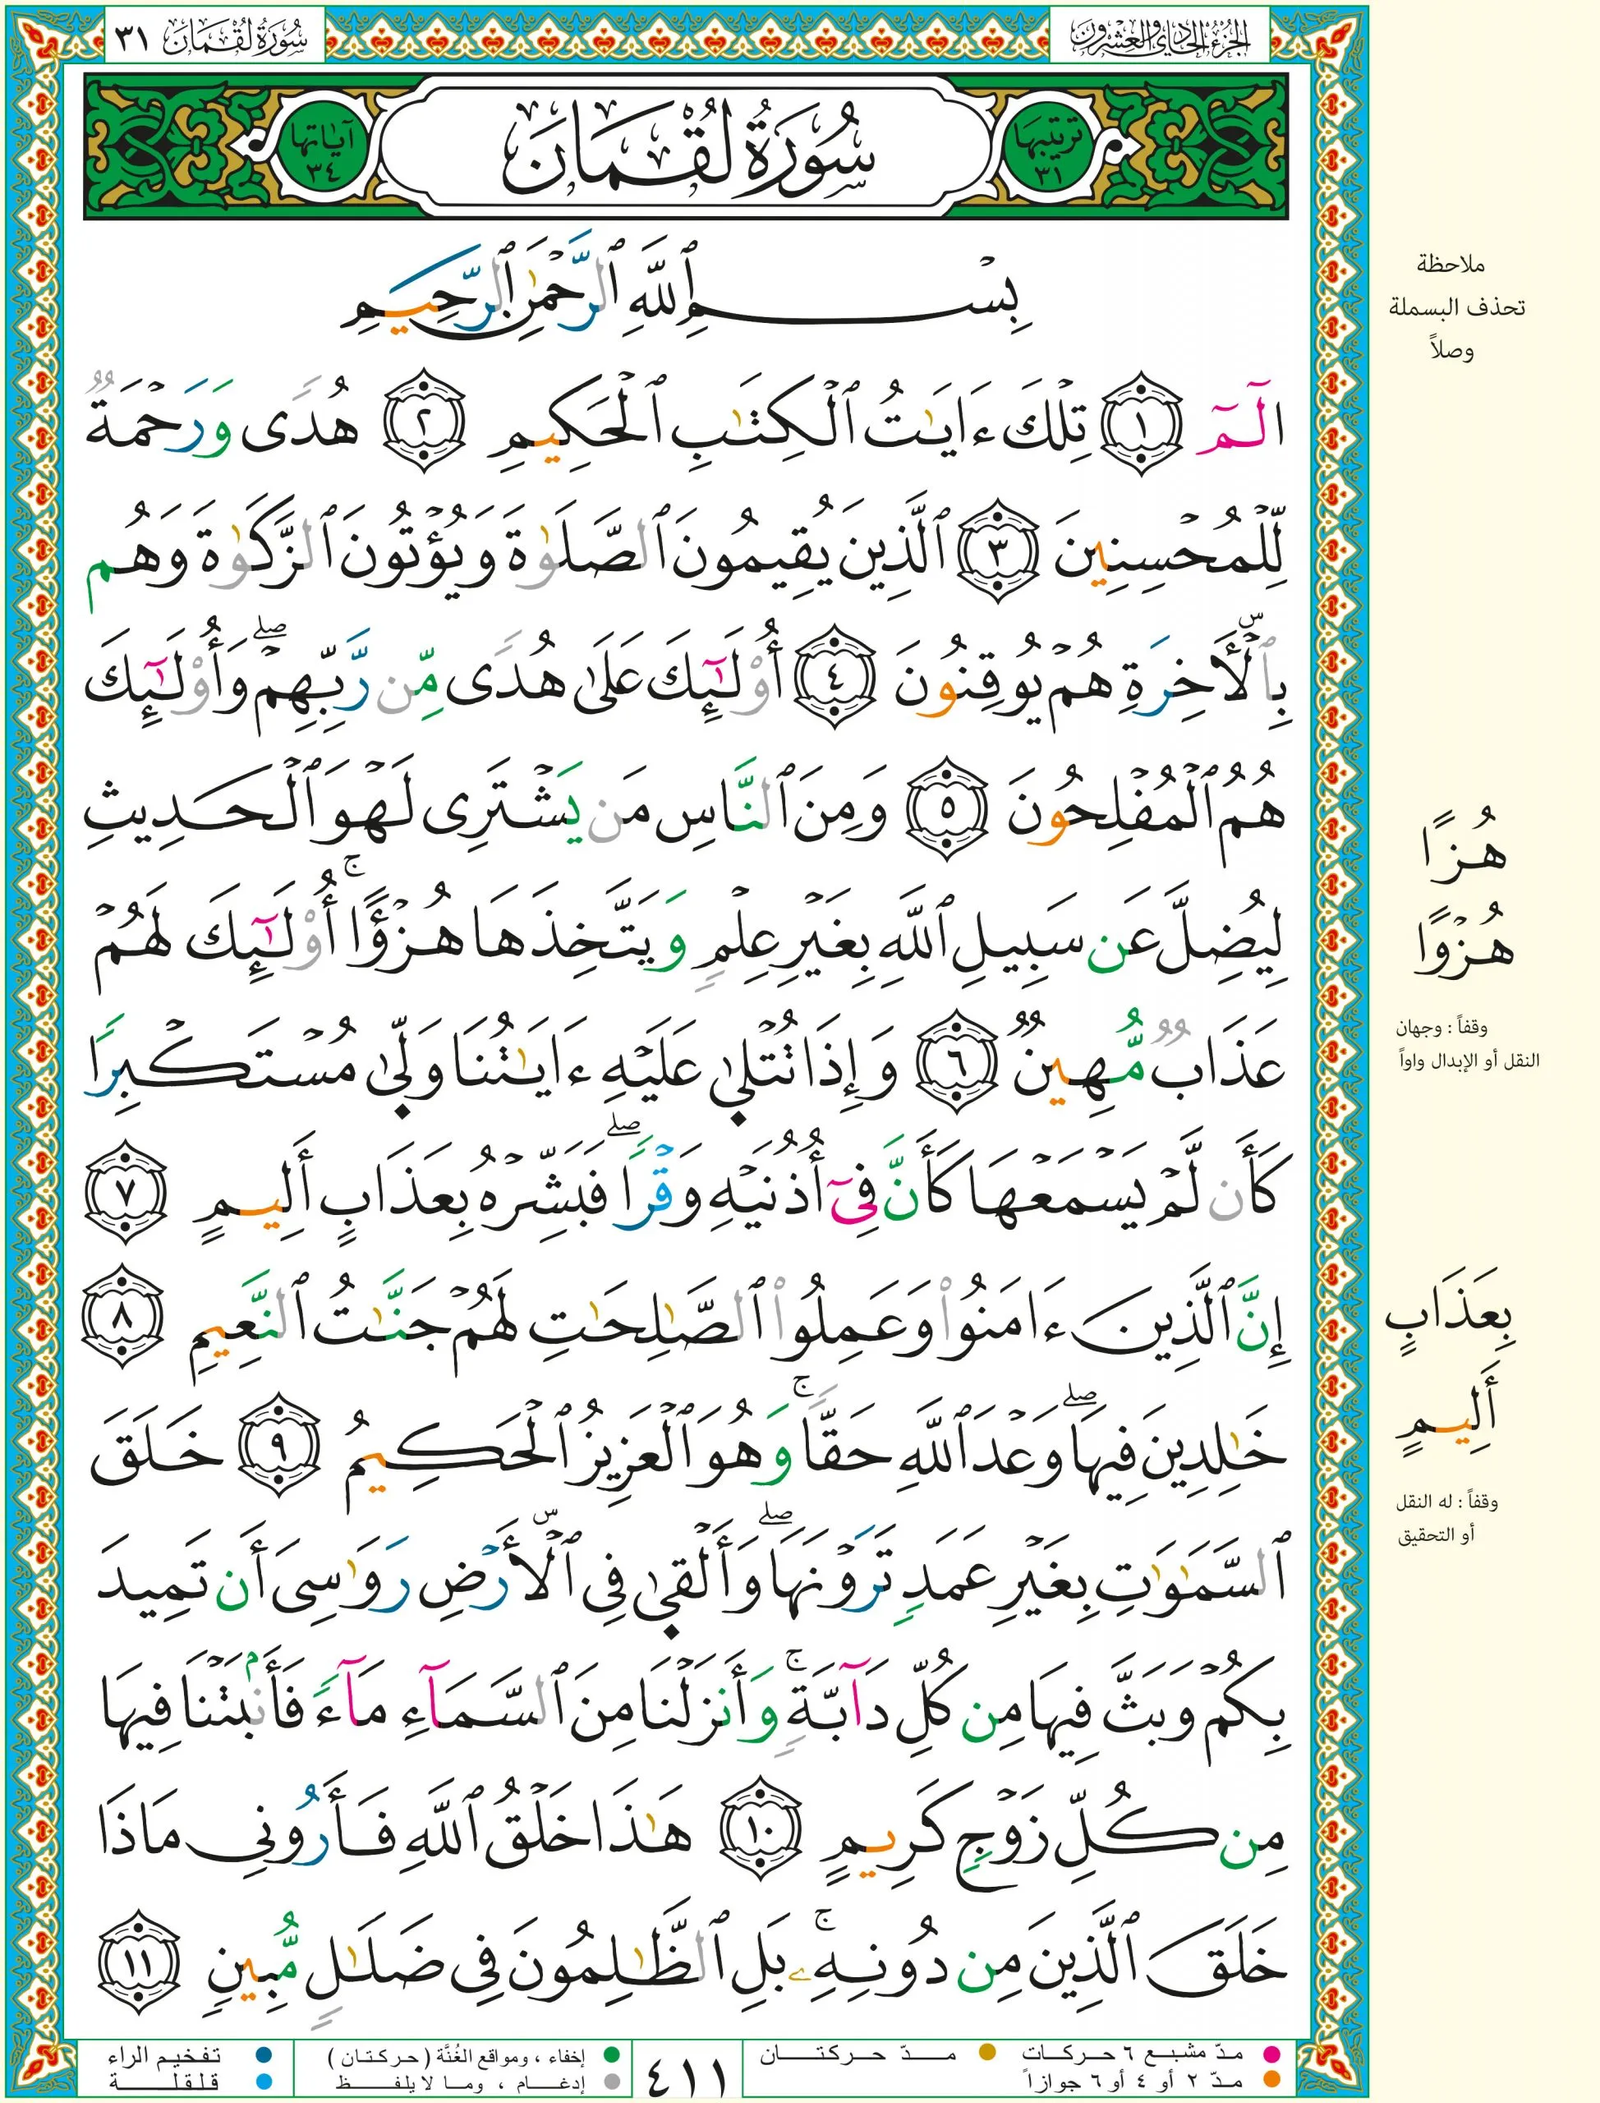 الجزء الحادي والعشرون
سُورَةُ لُقْمَان ٣١
ترتيبها ٣١
سُورَةُ لُقْمَانَ
آياتها ٣٤
بِسْمِ ٱللَّهِ ٱلرَّحْمَٰنِ ٱلرَّحِيمِ
الٓمٓ ١ تِلْكَ ءَايَٰتُ ٱلْكِتَٰبِ ٱلْحَكِيمِ ٢ هُدًى وَرَحْمَةً
لِّلْمُحْسِنِينَ ٣ ٱلَّذِينَ يُقِيمُونَ ٱلصَّلَوٰةَ وَيُؤْتُونَ ٱلزَّكَوٰةَ وَهُم
بِٱلْأَخِرَةِ هُمْ يُوقِنُونَ ٤ أُوْلَٰٓئِكَ عَلَىٰ هُدًى مِّن رَّبِّهِمْ ۖ وَأُوْلَٰٓئِكَ
هُمُ ٱلْمُفْلِحُونَ ٥ وَمِنَ ٱلنَّاسِ مَن يَشْتَرِى لَهْوَ ٱلْحَدِيثِ
لِيُضِلَّ عَن سَبِيلِ ٱللَّهِ بِغَيْرِ عِلْمٍ وَيَتَّخِذَهَا هُزْؤًا ۚ أُوْلَٰٓئِكَ لَهُمْ
عَذَابٌ مُّهِينٌ ٦ وَإِذَا تُتْلَىٰ عَلَيْهِ ءَايَٰتُنَا وَلَّىٰ مُسْتَكْبِرًا
كَأَن لَّمْ يَسْمَعْهَا كَأَنَّ فِىٓ أُذُنَيْهِ وَقْرًا ۖ فَبَشِّرْهُ بِعَذَابٍ أَلِيمٍ ٧
إِنَّ ٱلَّذِينَ ءَامَنُواْ وَعَمِلُواْ ٱلصَّٰلِحَٰتِ لَهُمْ جَنَّٰتُ ٱلنَّعِيمِ ٨
خَٰلِدِينَ فِيهَا ۖ وَعْدَ ٱللَّهِ حَقًّا ۚ وَهُوَ ٱلْعَزِيزُ ٱلْحَكِيمُ ٩ خَلَقَ
ٱلسَّمَٰوَٰتِ بِغَيْرِ عَمَدٍ تَرَوْنَهَا ۖ وَأَلْقَىٰ فِى ٱلْأَرْضِ رَوَٰسِىَ أَن تَمِيدَ
بِكُمْ وَبَثَّ فِيهَا مِن كُلِّ دَآبَّةٍ ۚ وَأَنزَلْنَا مِنَ ٱلسَّمَآءِ مَآءً فَأَنۢبَتْنَا فِيهَا
مِن كُلِّ زَوْجٍ كَرِيمٍ ١٠ هَٰذَا خَلْقُ ٱللَّهِ فَأَرُونِى مَاذَا
خَلَقَ ٱلَّذِينَ مِن دُونِهِۦ ۚ بَلِ ٱلظَّٰلِمُونَ فِى ضَلَٰلٍ مُّبِينٍ ١١
ملاحظة
تحذف البسملة
وصلاً
هُزًا
هُزْوًا
وقفاً : وجهان
النقل أو الإبدال واواً
بِعَذَابٍ
أَلِيمٍ
وقفاً : له النقل
أو التحقيق
مدّ مشبع ٦ حركات
مدّ حركتان
مدّ ٢ أو ٤ أو ٦ جوازاً
٤١١
إخفاء ، ومواقع الغُنَّة ( حركتان )
إدغام ، وما لا يلفظ
تفخيم الراء
قلقلة